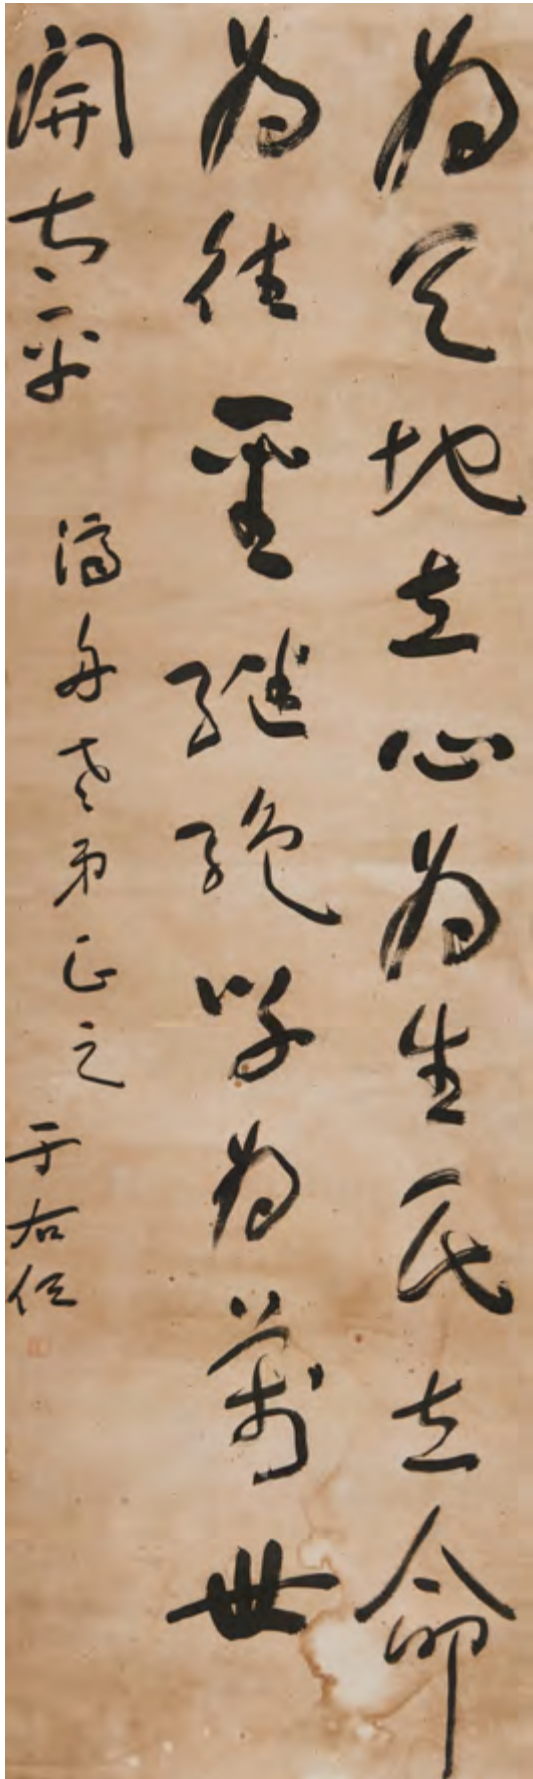 為天地立心為生民立命
為往聖繼絕學為萬世
開太平
濟舟老弟正之
于右任